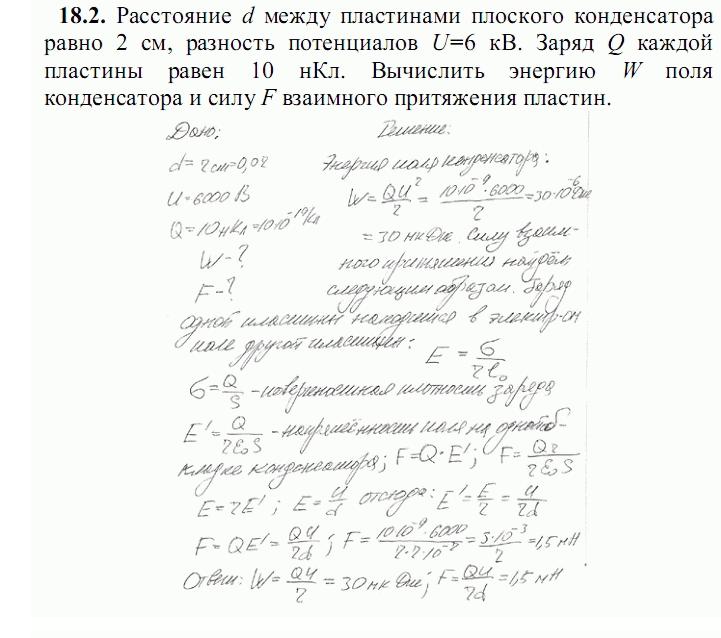 18.2. Расстояние d между пластинами плоского конденсатора
равно 2 см, разность потенциалов U=6 кВ. Заряд Q каждой
пластины равен 10 нКл. Вычислить энергию W поля
конденсатора и силу F взаимного притяжения пластин.
Дано: Решение:
d = 2 см = 0,02 Энергия поля конденсатора:
U = 6000 В W = QU²/2 = 10·10⁻⁹·6000/2 = 30·10⁻⁶ Дж
Q = 10 нКл = 10·10⁻¹⁹ Кл = 30 мкДж. Силу взаим-
W - ? ного притяжения найдём
F - ? следующим образом. Заряд
одной пластины находится в электр-ом
поле другой пластины: E = σ/2ε₀
σ = Q/S - поверхностная плотность заряда
E' = Q/2ε₀S - напряжённость поля на одной об-
кладке конденсатора; F = Q·E'; F = Q2/2ε₀S
E = 2E'; E = U/d отсюда: E' = E/2 = U/2d
F = QE' = QU/2d; F = 10·10⁻⁹·6000/2·2·10⁻² = 3·10⁻³/2 = 1,5 мН
Ответ: W = QU/2 = 30 мкДж; F = QU/2d = 1,5 мН